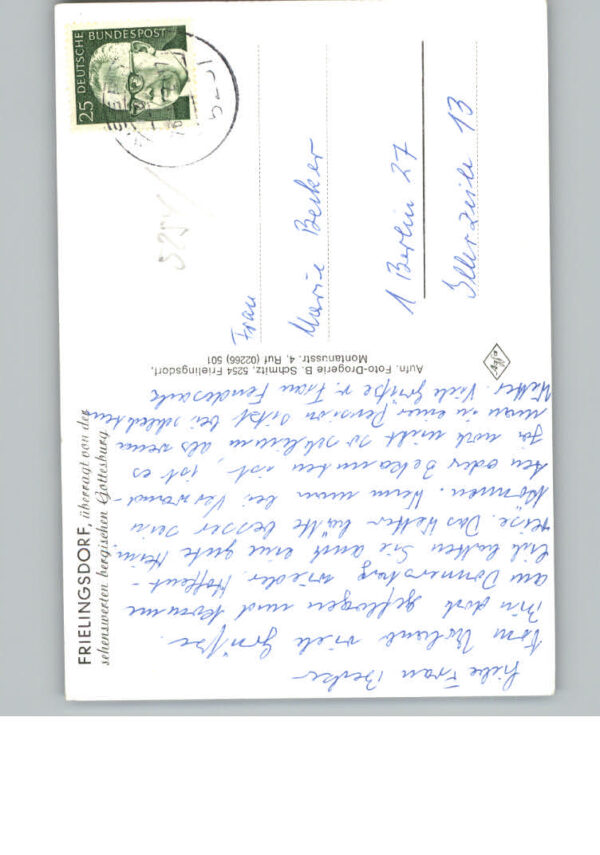 FRIELINGSDORF, überragt von der
sehenswerten bergischen Gottesburg
Liebe Frau Becker
Vom Urlaub viele Grüße.
Bin doch geflogen und komme
am Donnerstag wieder. Hoffent-
lich hatten Sie auch eine gute Heim-
reise. Das Wetter hätte besser sein
können. Wenn man bei Verwand-
ten oder Bekannten ist, ist es
ja noch nicht so schlimm als wenn
man in einer Pension sitzt bei schlechtem
Wetter. Viele Grüße v. Frau
Aufn. Foto-Drogerie B. Schmitz, 5254 Frielingsdorf,
Montanusstr. 4, Ruf (02266) 501
Agfa
DEUTSCHE BUNDESPOST
25
5254
Frau
Marie Becker
1 Berlin 27
Illerzeile 13